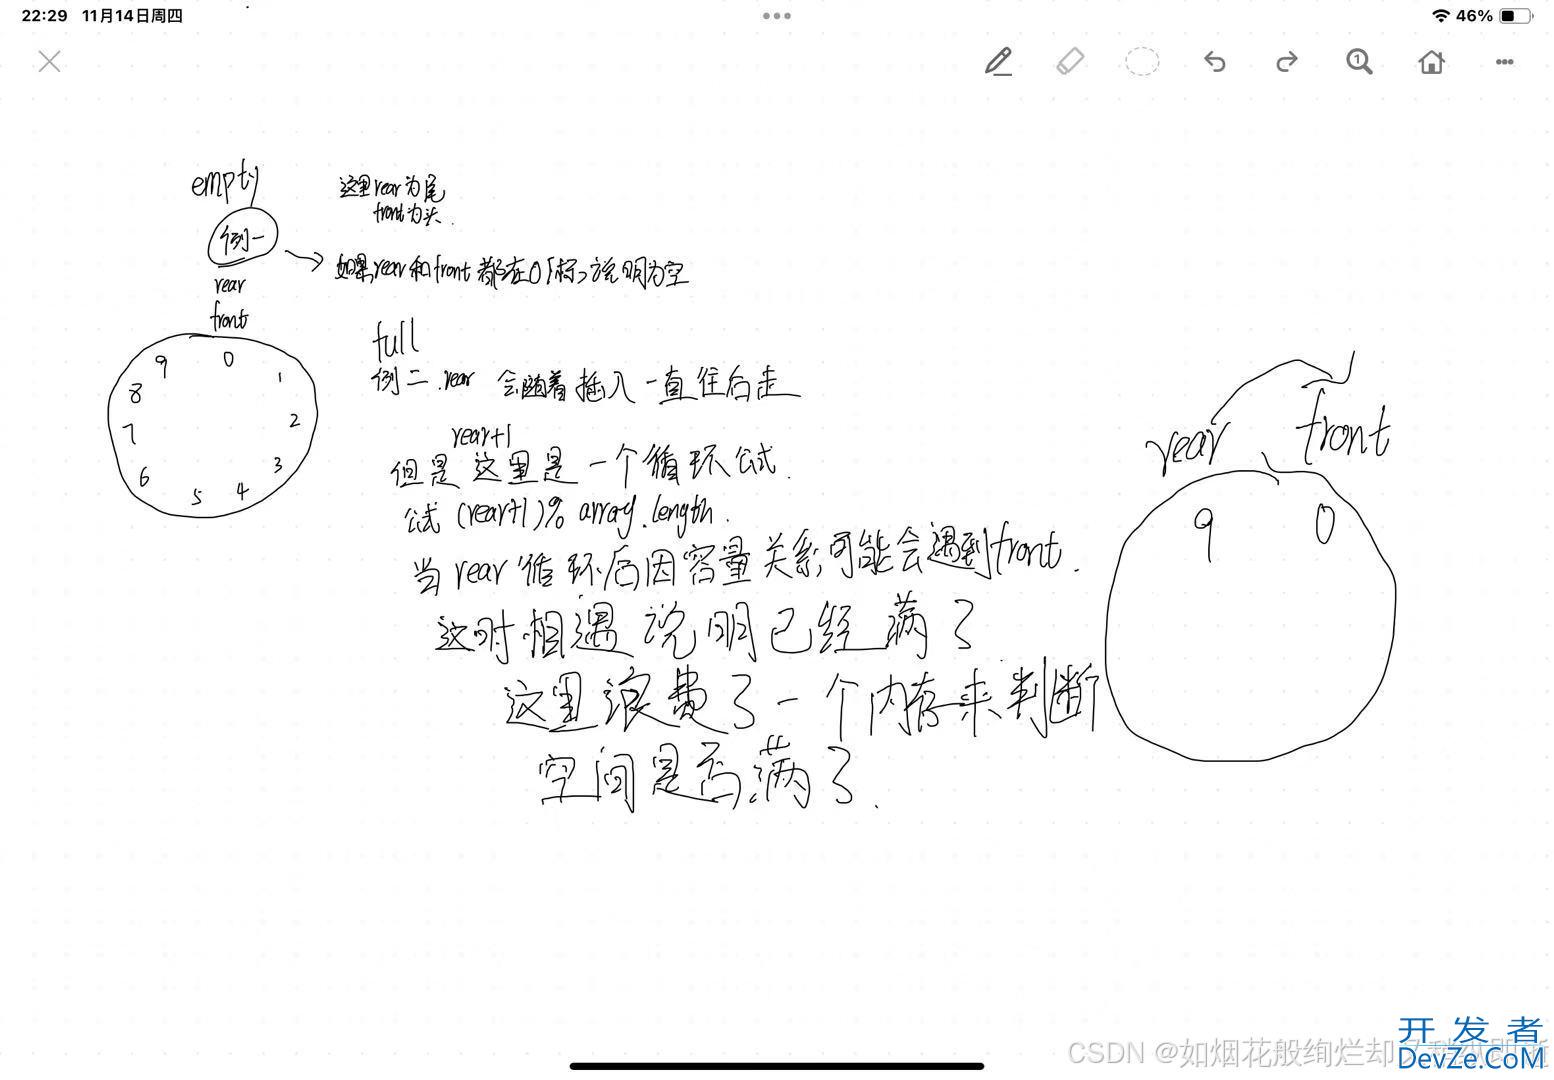 22:29 11月14日周四
46%
1
empty
例一
rear
front
这里rear为尾
front为头.
如果rear和front都在0下标,说明为空
9 0 1 2 3 4 5 6 7 8
full
例二.rear 会随着插入一直往后走
rear+1
但是这里是一个循环公式.
公式 (rear+1)% array.length.
当rear循环后因容量关系,可能会遇到front.
这时相遇说明已经满了
这里浪费了一个内存来判断
空间是否满了.
rear front
9 0
CSDN @如烟花般绚烂却又
开发者
DevZe.CoM